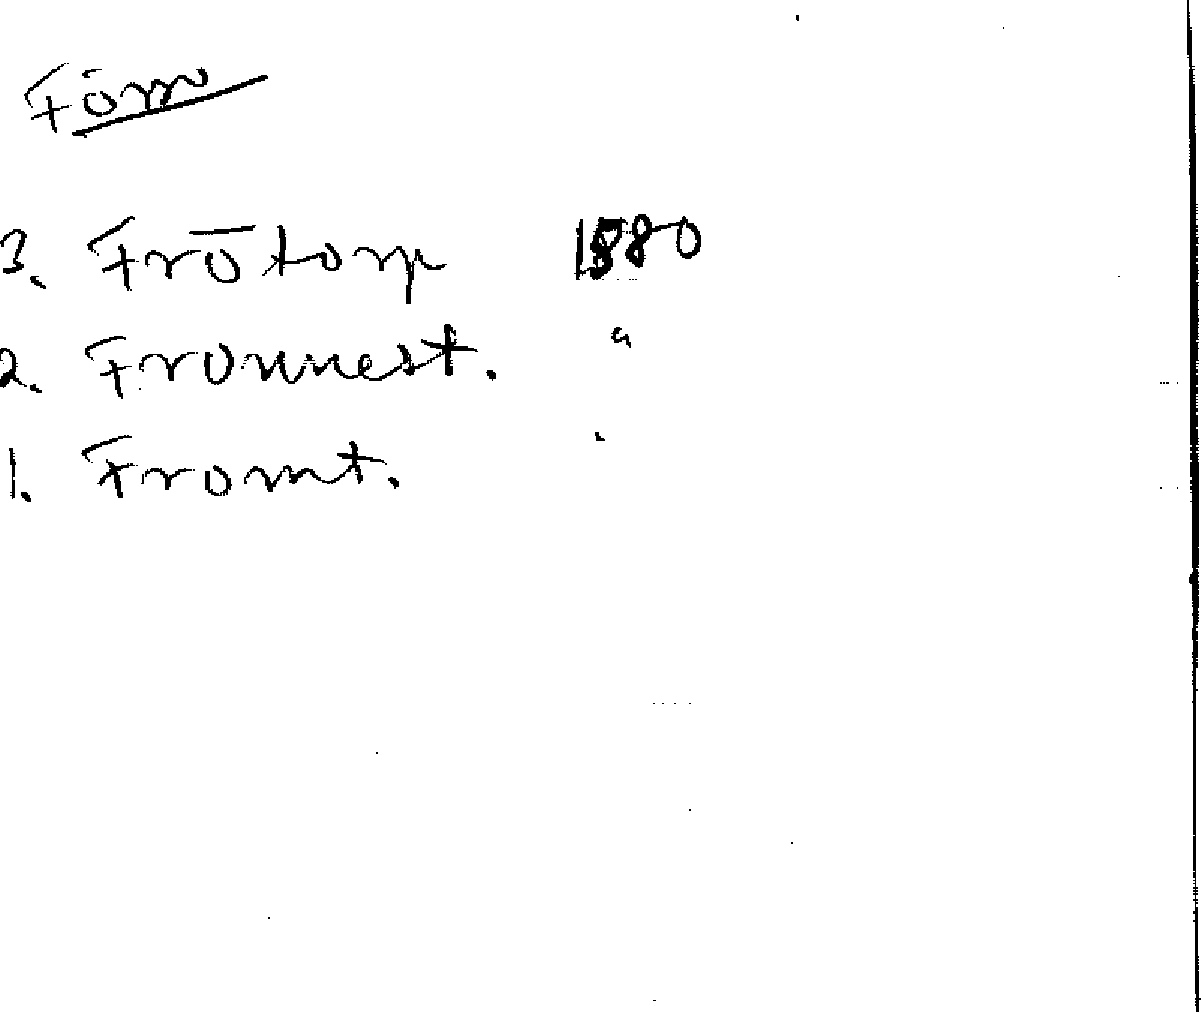 Förn
3. Frötorp 1880
2. Fronnest. "
1. Fromt. "